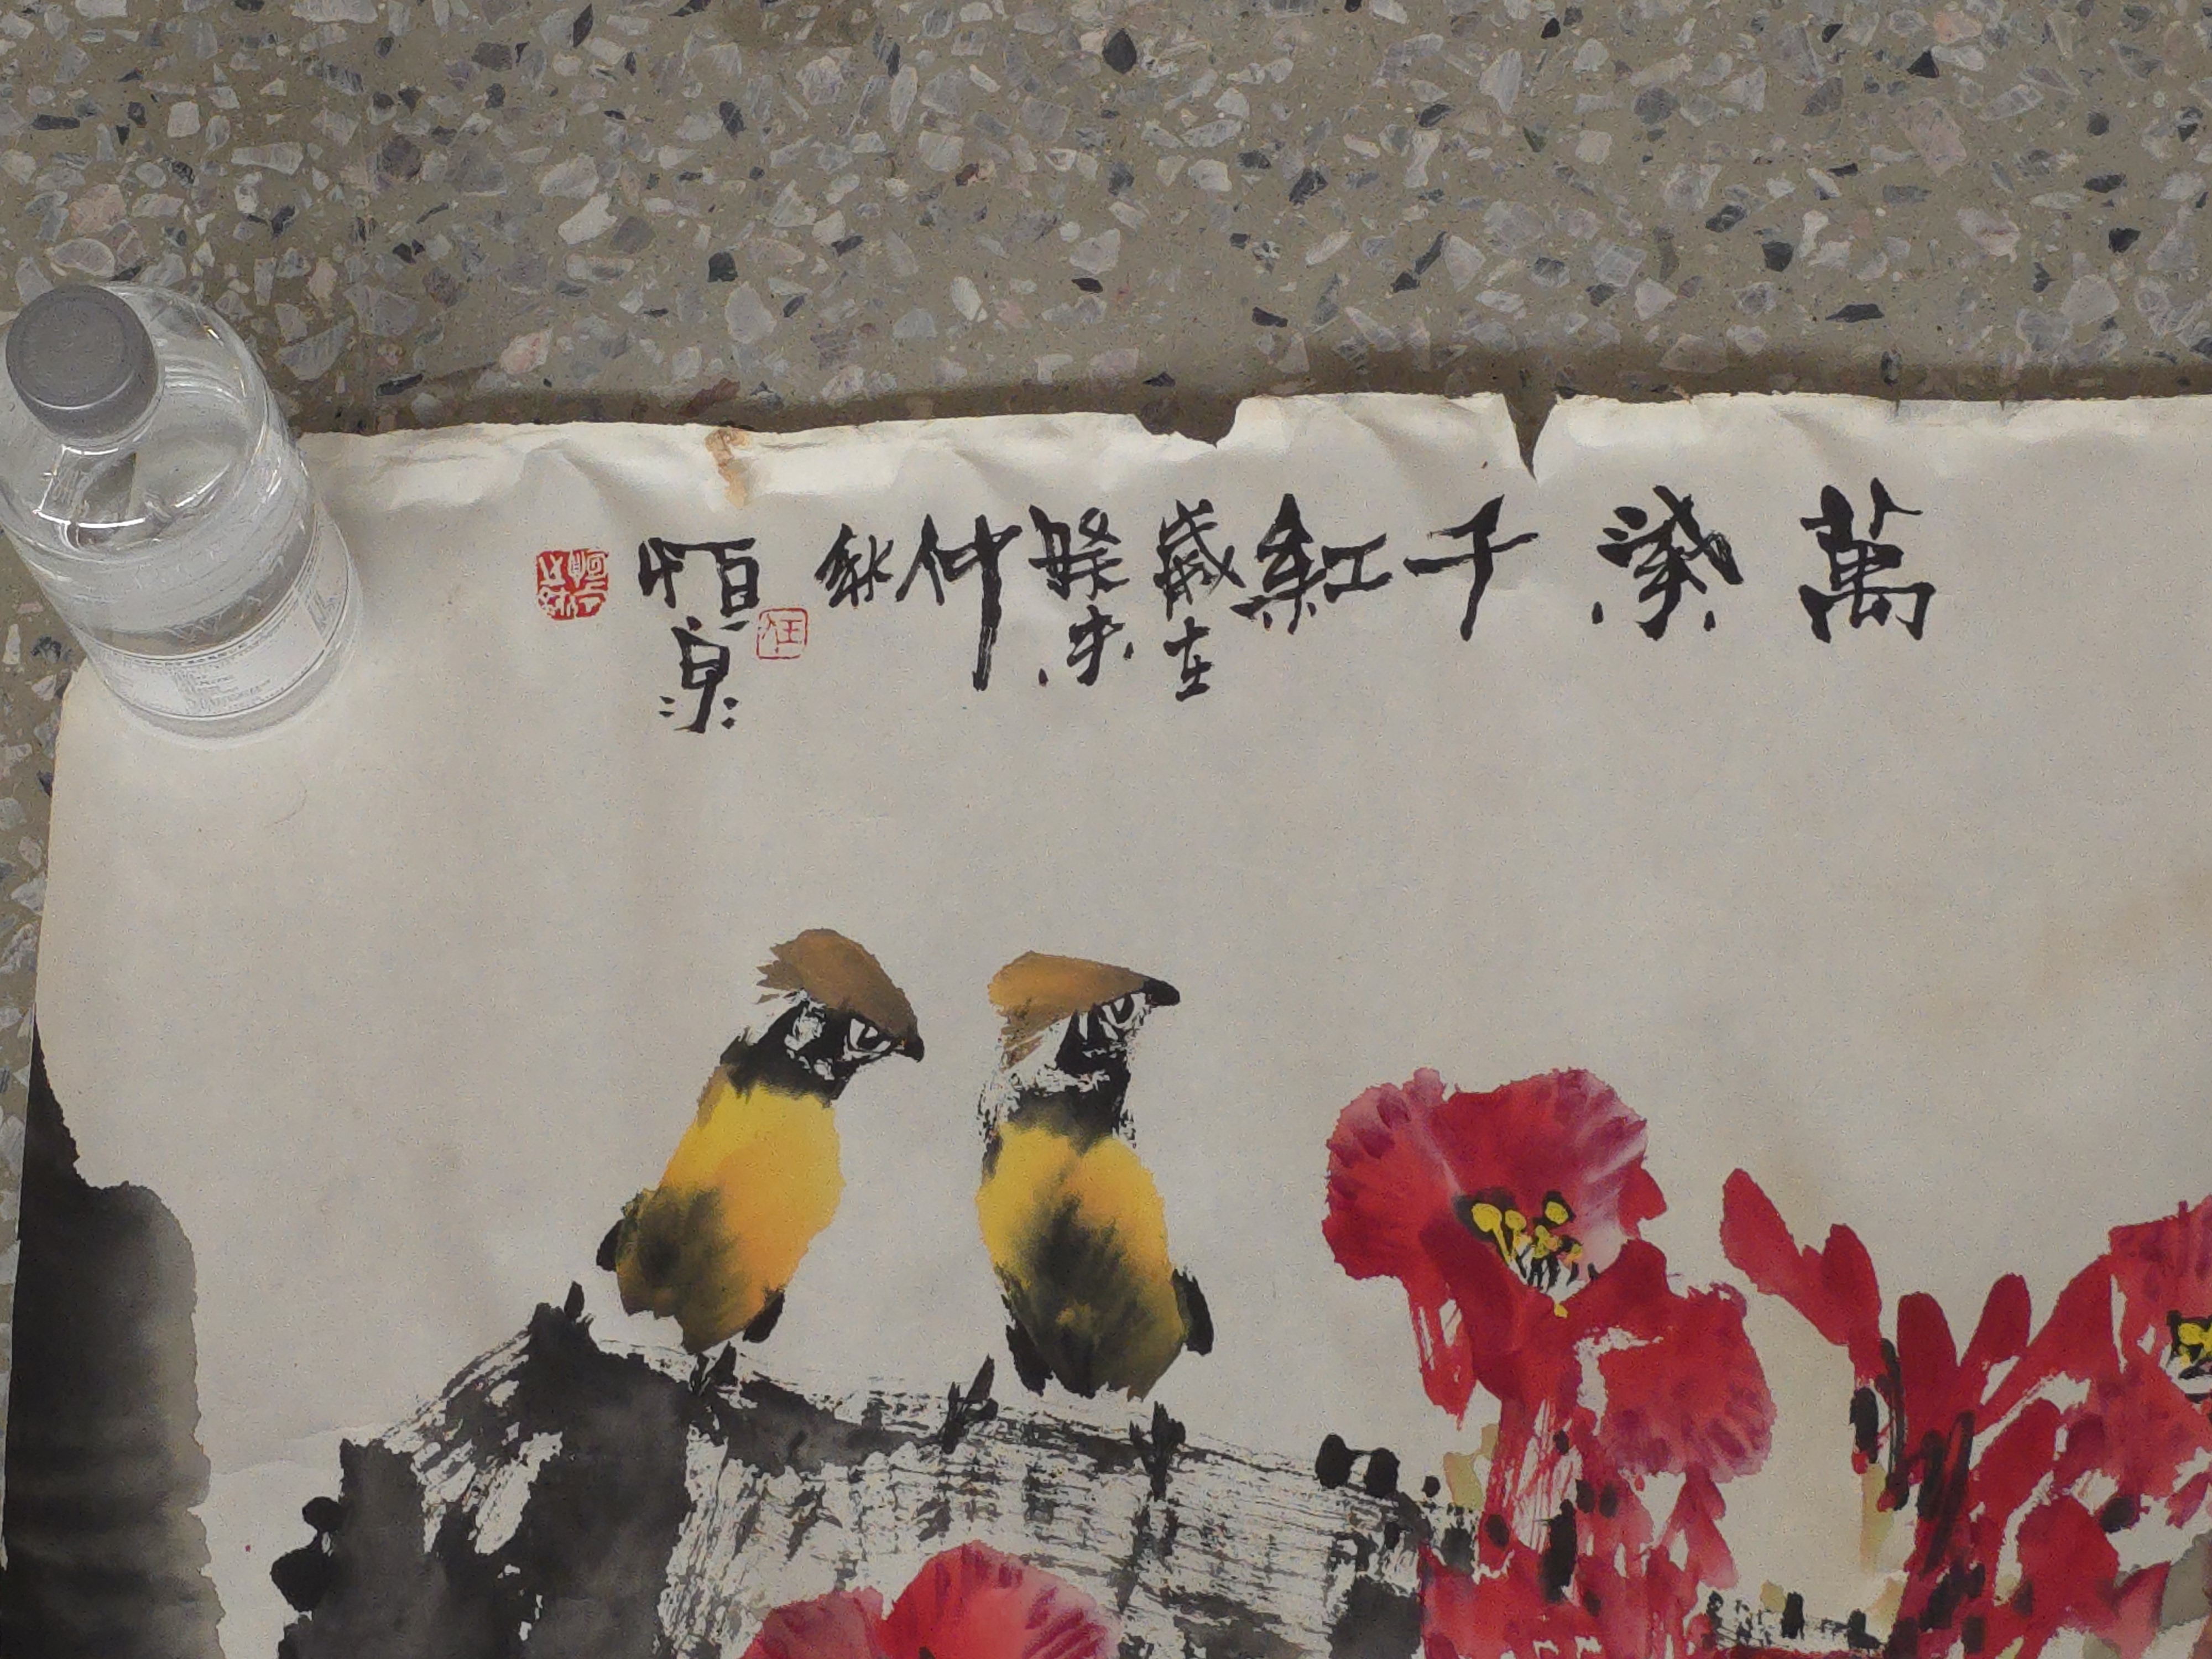 萬紫千紅歲在癸未仲秋恒泉